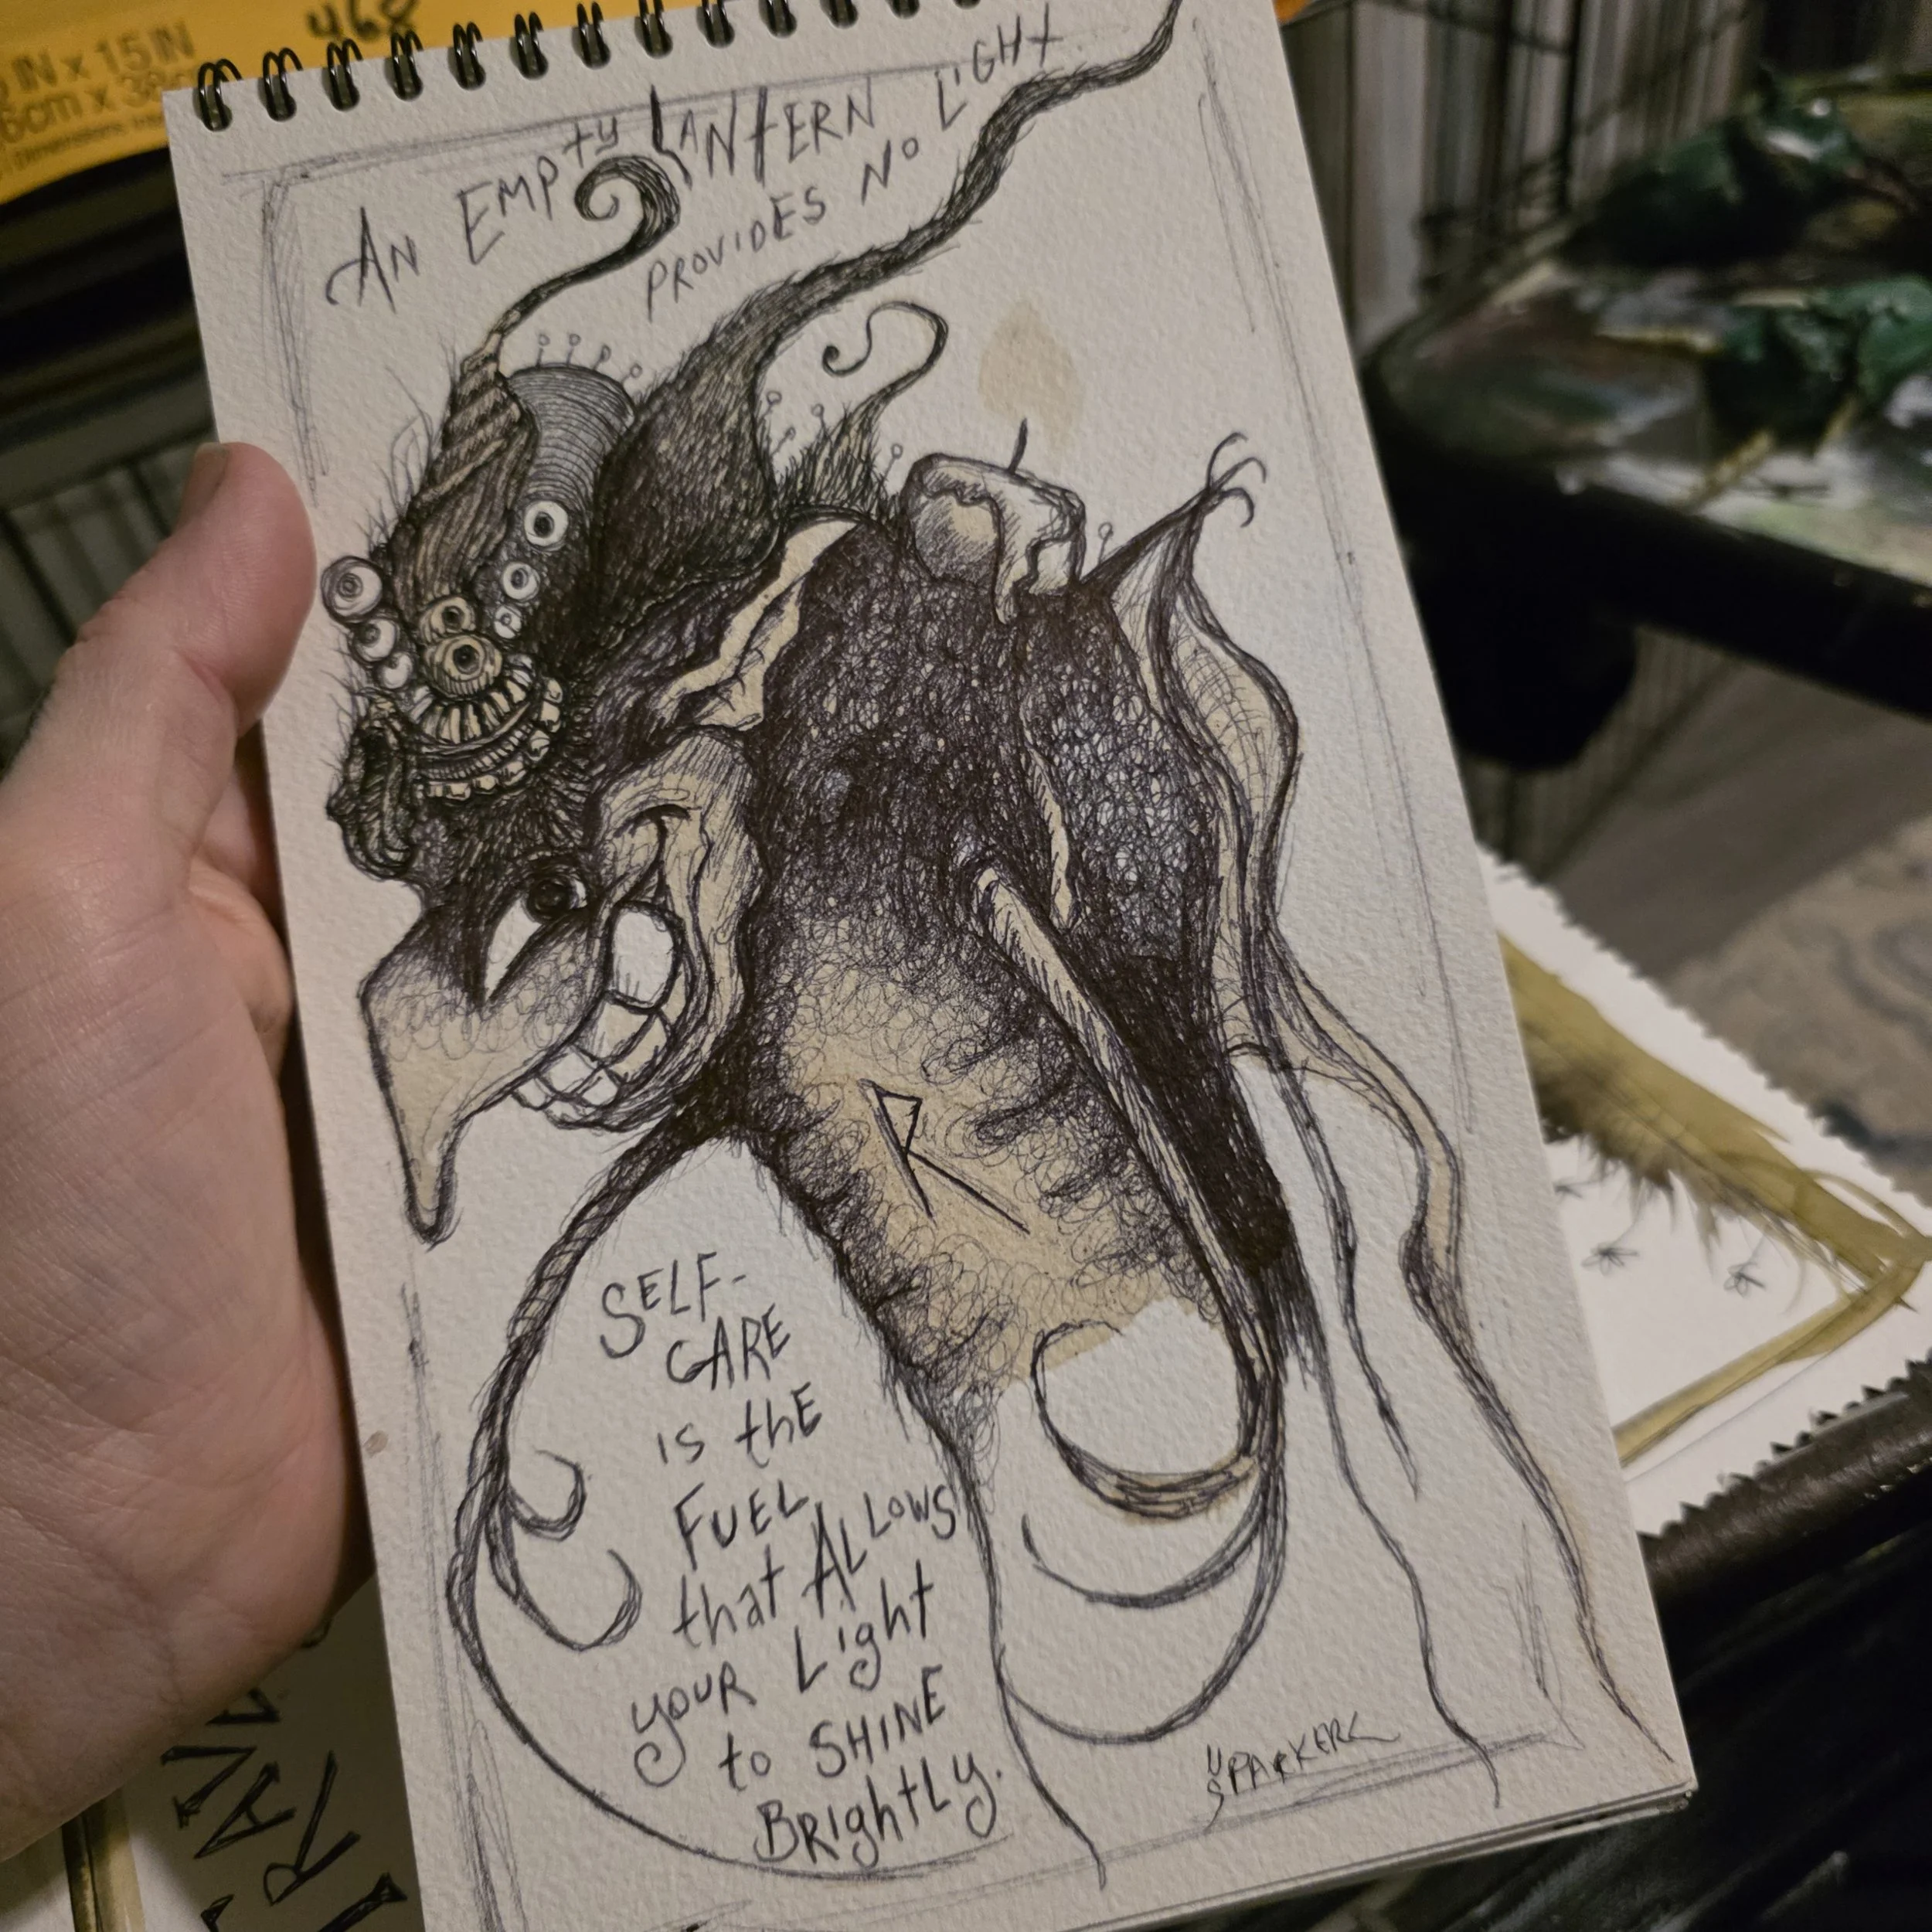 468
IN x 15 IN
cm x 38c
AN EMPty LANtERN
PROVIDES No LiGHt.
R
SELF-
CARE
is thE
FUEL
that ALLOWS
youR Light
to SHINE
BRightLy.
SPARKER